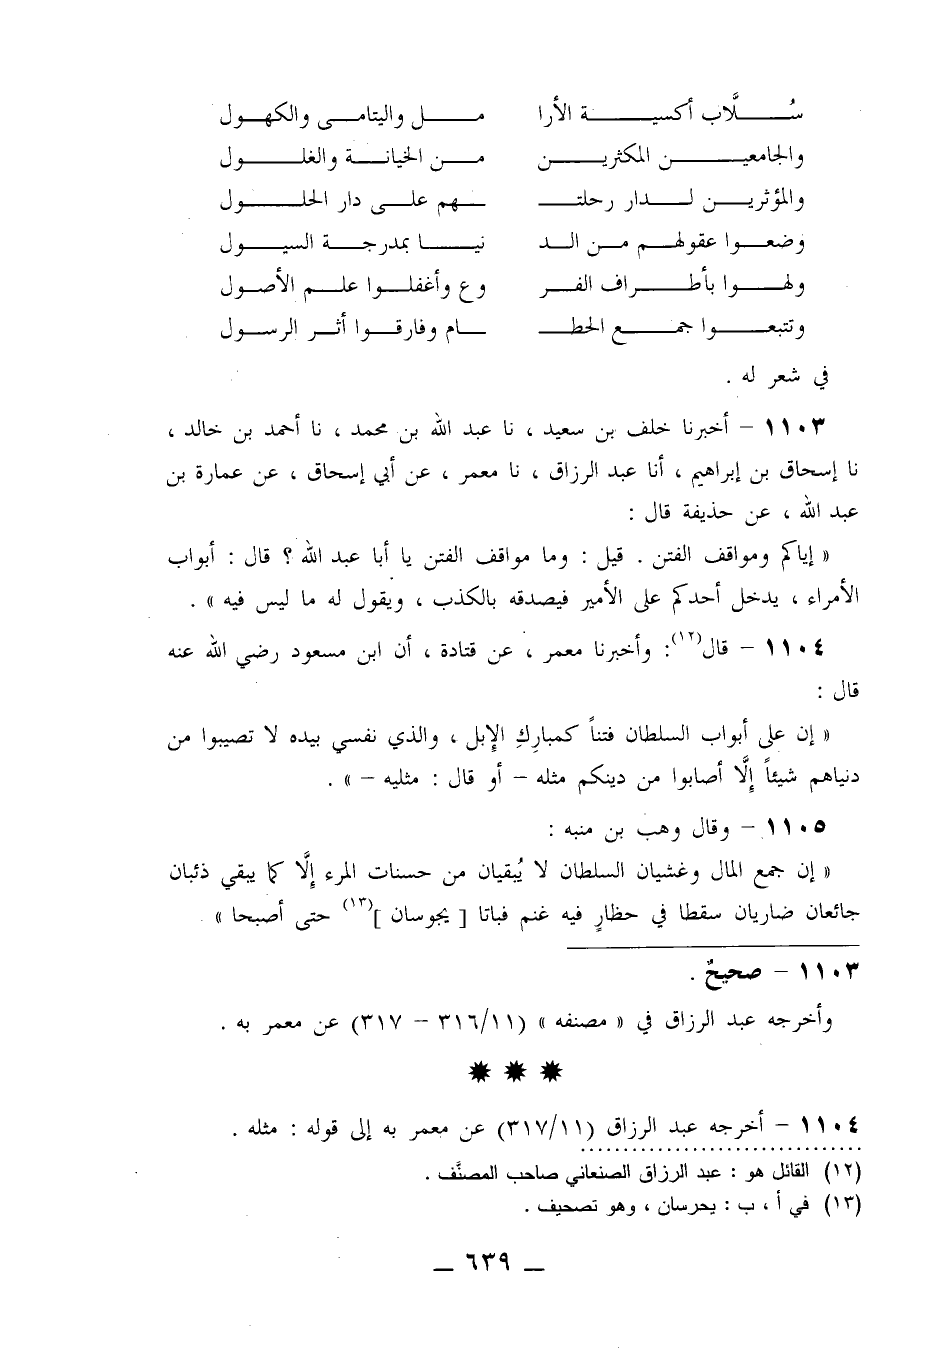 سُلَّاب أكسية الأرا مل واليتامى والكهول
والجامعين المكثرين من الخيانة والغلول
والمؤثرين لدار رحلتـ ـهم على دار الحلول
وضعوا عقولهم من الد نيا بمدرجة السيول
ولهوا بأطراف الفر وع وأغفلوا علم الأصول
وتتبعوا جمع الحطـ ـام وفارقوا أثر الرسول
في شعر له .
١١٠٣ – أخبرنا خلف بن سعيد ، نا عبد الله بن محمد ، نا أحمد بن خالد ،
نا إسحاق بن إبراهيم ، أنا عبد الرزاق ، نا معمر ، عن أبي إسحاق ، عن عمارة بن
عبد الله ، عن حذيفة قال :
« إياكم ومواقف الفتن . قيل : وما مواقف الفتن يا أبا عبد الله ؟ قال : أبواب
الأمراء ، يدخل أحدكم على الأمير فيصدقه بالكذب ، ويقول له ما ليس فيه » .
١١٠٤ – قال(١٢): وأخبرنا معمر ، عن قتادة ، أن ابن مسعود رضي الله عنه
قال :
« إن على أبواب السلطان فتناً كمباركِ الإبل ، والذي نفسي بيده لا تصيبوا من
دنياهم شيئاً إلَّا أصابوا من دينكم مثله – أو قال : مثليه – » .
١١٠٥ – وقال وهب بن منبه :
« إن جمع المال وغشيان السلطان لا يُبقيان من حسنات المرء إلَّا كما يبقي ذئبان
جائعان ضاريان سقطا في حظارٍ فيه غنم فباتا [ يجوسان ](١٣) حتى أصبحا » .
١١٠٣ – صحيحٌ .
وأخرجه عبد الرزاق في « مصنفه » (٣١٦/١١ – ٣١٧) عن معمر به .
✸ ✸ ✸
١١٠٤ – أخرجه عبد الرزاق (٣١٧/١١) عن معمر به إلى قوله : مثله .
(١٢) القائل هو : عبد الرزاق الصنعاني صاحب المصنَّف .
(١٣) في أ ، ب : يحرسان ، وهو تصحيف .
– ٦٣٩ –